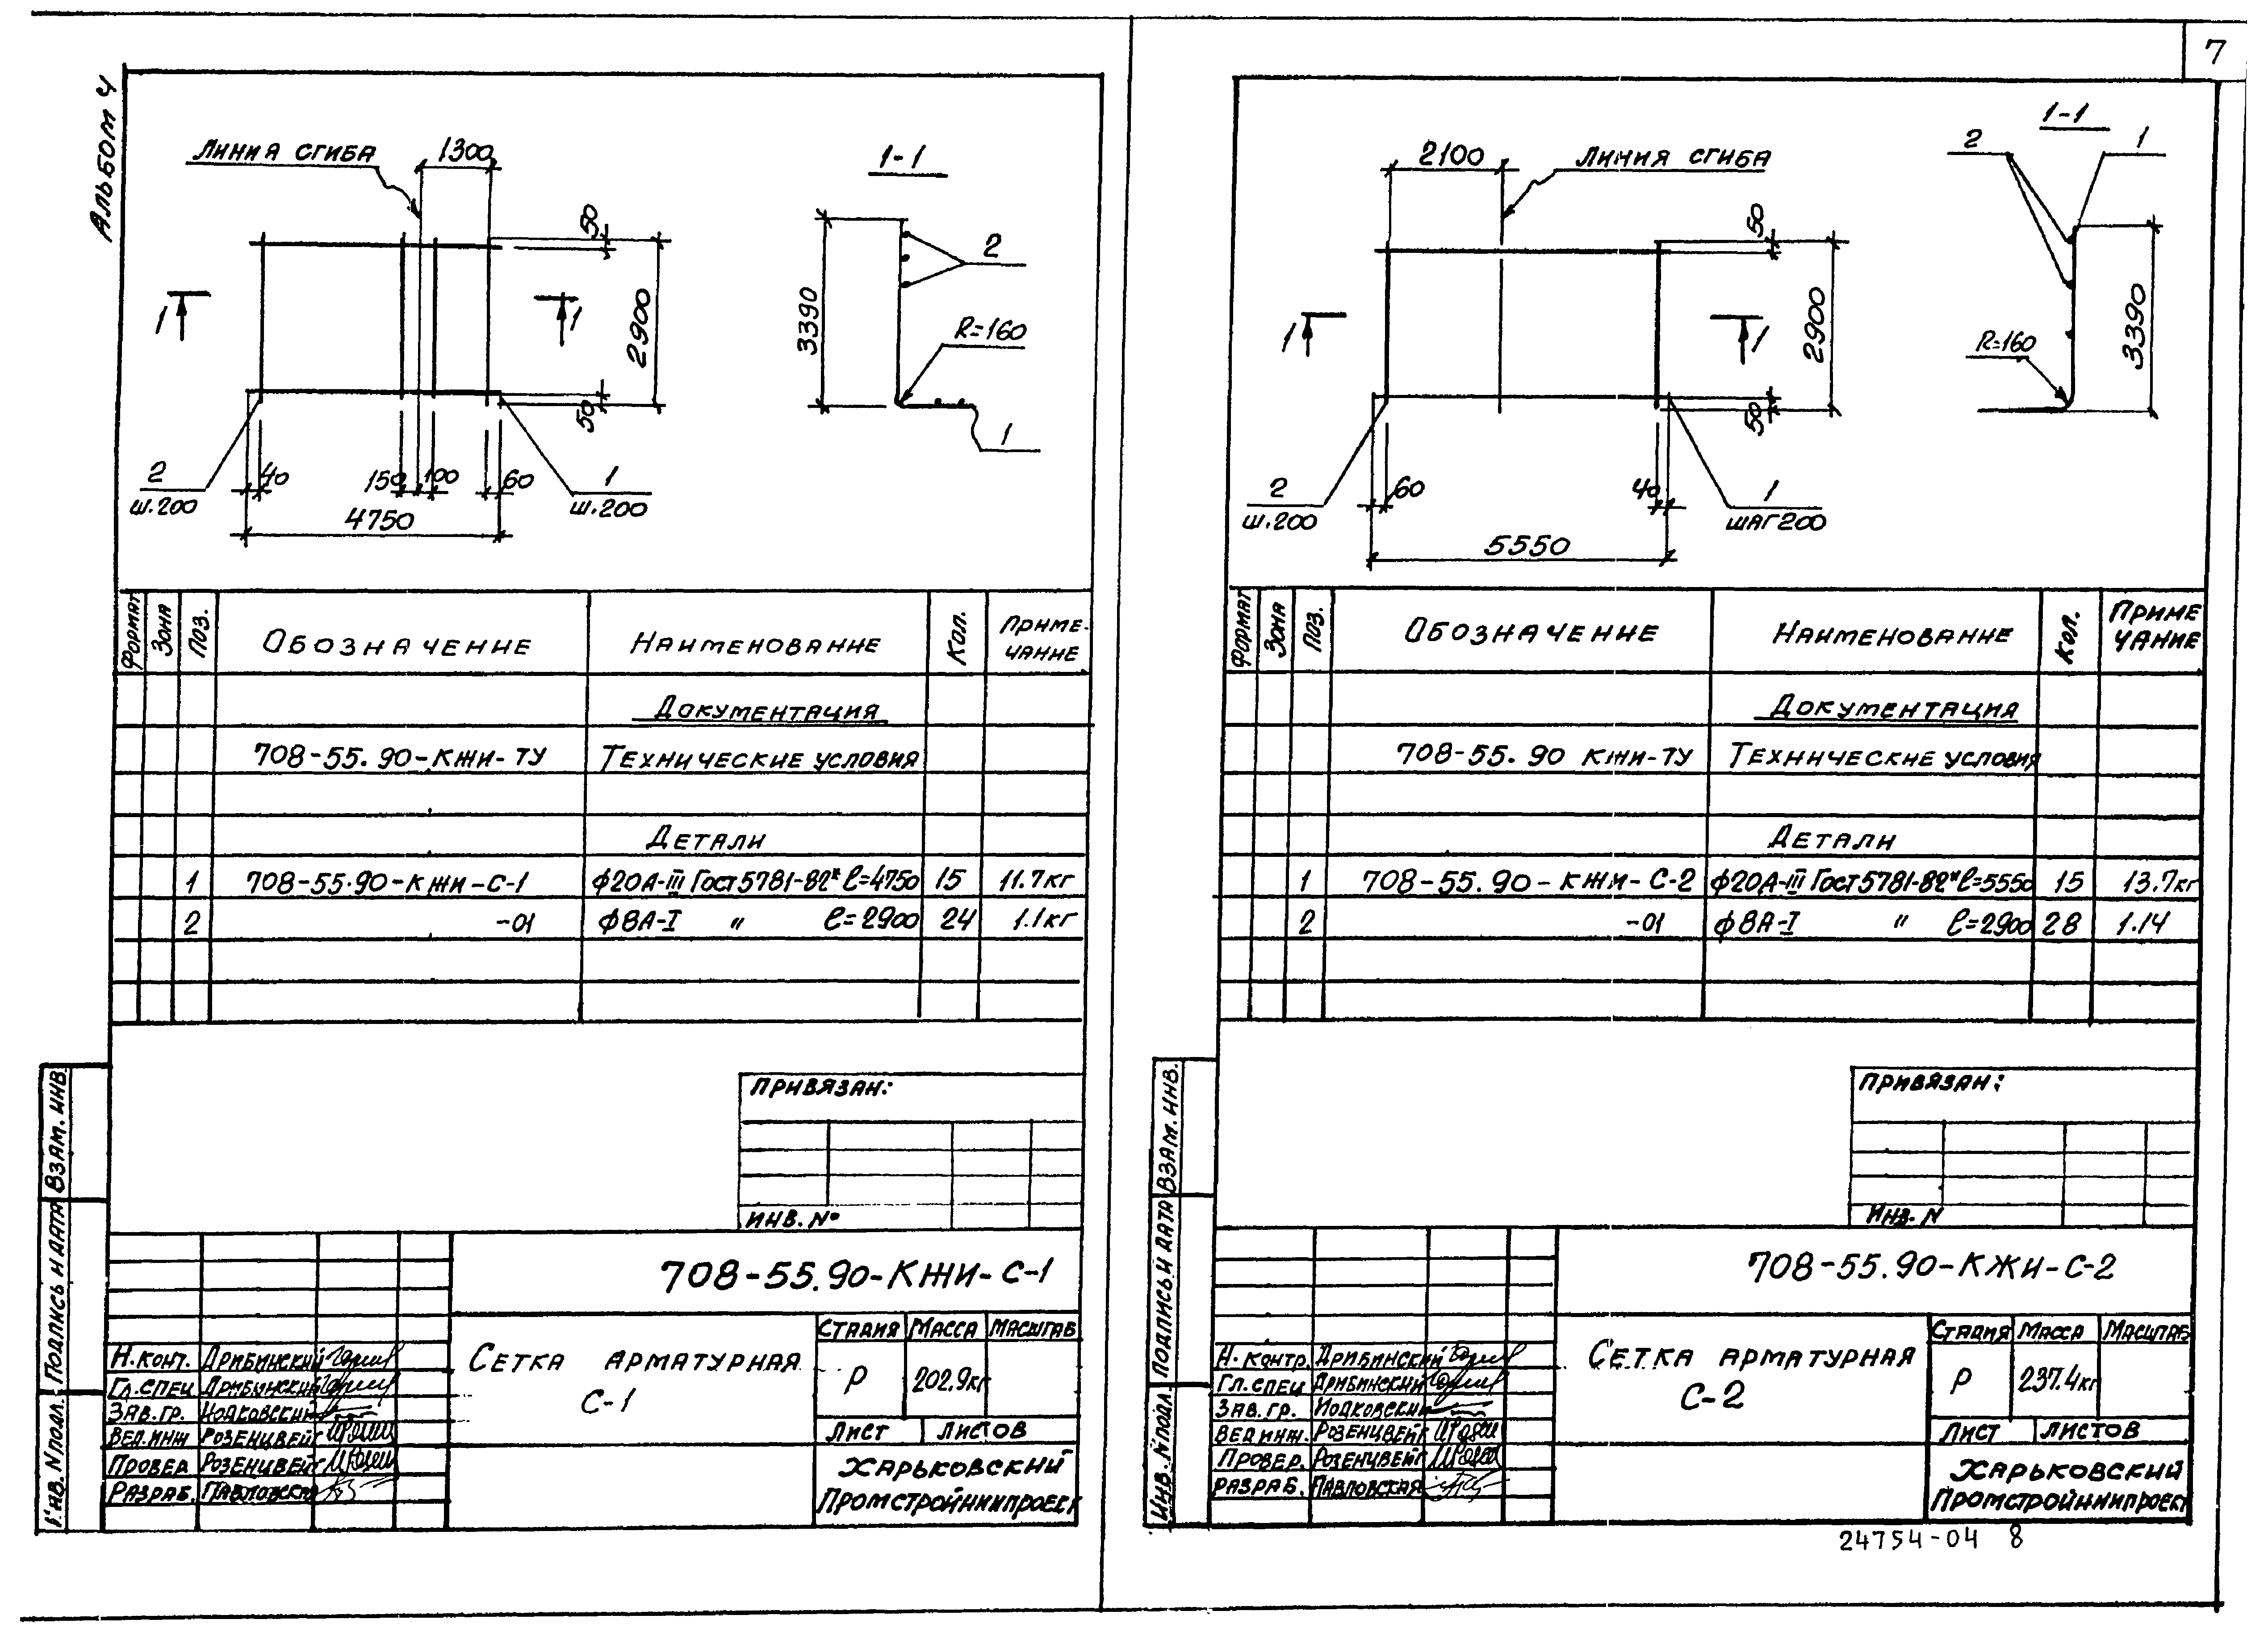 7
Альбом 4
Линия сгиба
1300
1-1
50
2
3390
2900
R=160
1
1
50
1
2
ш.200
40
150
100
60
1
ш.200
4750
Формат
Зона
Поз.
Обозначение
Наименование
Кол.
Приме-
чание
Документация
708-55.90-КЖИ-ТУ Технические условия
Детали
1 708-55.90-КЖИ-С-1 ф20А-III Гост 5781-82* l=4750 15 11.7кг
2 -01 ф8А-I " l=2900 24 1.1кг
Привязан:
Инв. №
708-55.90-КЖИ-С-1
Сетка арматурная
С-1
Стадия Масса Масштаб
Р 202.9кг
Лист Листов
Харьковский
Промстройниипроект
Н.конт. Дрибинский
Гл.спец Дрибинский
Зав.гр.
Вед.инж Розенцвейг
Провер Розенцвейг
Разраб. Павловская
Взам. инв.
Подпись и дата
Инв. N подл.
2100
Линия сгиба
1-1
2
1
50
2900
3390
R=160
1
1
50
2
ш.200
60
40
1
шаг 200
5550
Формат
Зона
Поз.
Обозначение
Наименование
Кол.
Приме
чание
Документация
708-55.90 КЖИ-ТУ Технические условия
Детали
1 708-55.90-КЖИ-С-2 ф20А-III Гост 5781-82* l=5550 15 13.7кг
2 -01 ф8А-I " l=2900 28 1.14
Привязан:
Инв. N
708-55.90-КЖИ-С-2
Сетка арматурная
С-2
Стадия Масса Масштаб
Р 237.4кг
Лист Листов
Харьковский
Промстройниипроект
Н.контр. Дрибинский
Гл.спец Дрибинский
Зав.гр.
Вед инж. Розенцвейг
Провер. Розенцвейг
Разраб. Павловская
Взам. инв.
Подпись и дата
Инв. N подл.
24754-04 8